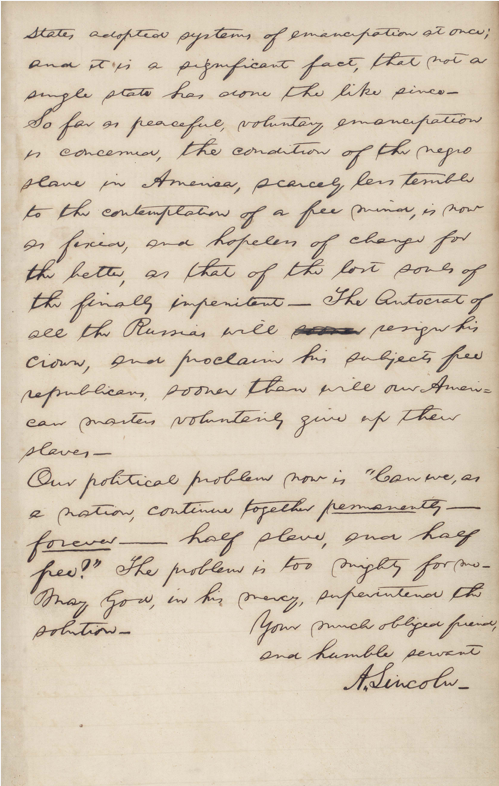 States adopted systems of emancipation at once;
and it is a significant fact, that not a
single state has done the like since—
So far as peaceful, voluntary emancipation
is concerned, the condition of the negro
slave in America, scarcely less terrible
to the contemplation of a free mind, is now
as fixed, and hopeless of change for
the better, as that of the lost souls of
the finally impenitent— The Autocrat of
all the Russias will resign his
crown, and proclaim his subjects free
republicans sooner than will our Ameri=
can masters voluntarily give up their
slaves—
Our political problem now is "Can we, as
a nation, continue together permanently—
forever— half slave, and half
free?" The problem is too mighty for me—
May God, in his mercy, superintend the
solution—
Your much obliged friend,
and humble servant
A. Lincoln—